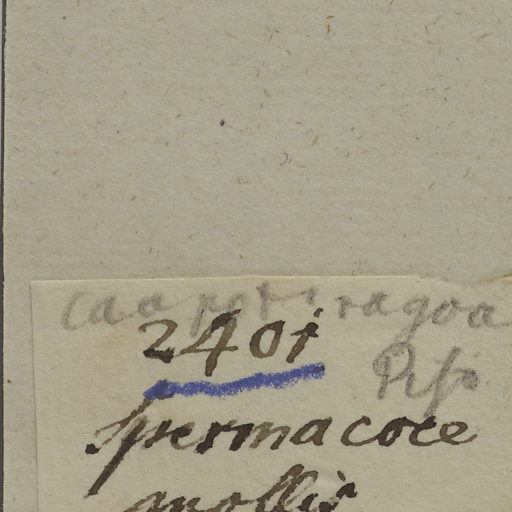 Caapotiragoa
2401
Piso
Spermacoce
mollis